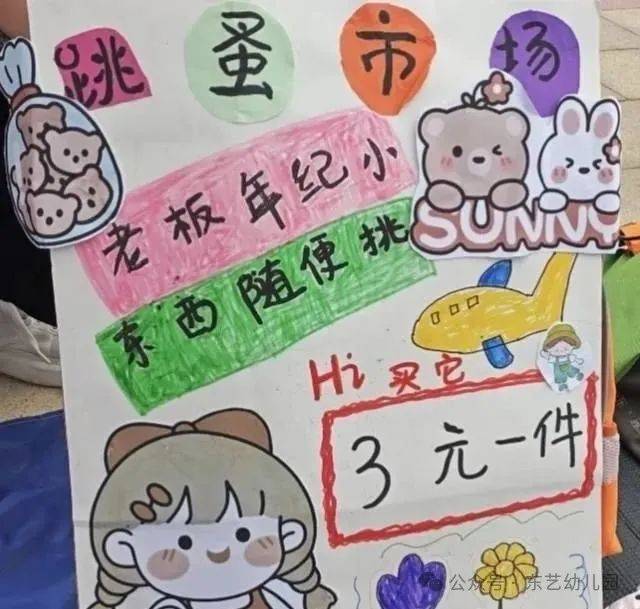 跳蚤市场
老板年纪小
东西随便挑
SUNNY
Hi 买它
3元一件
公众号·东艺幼儿园